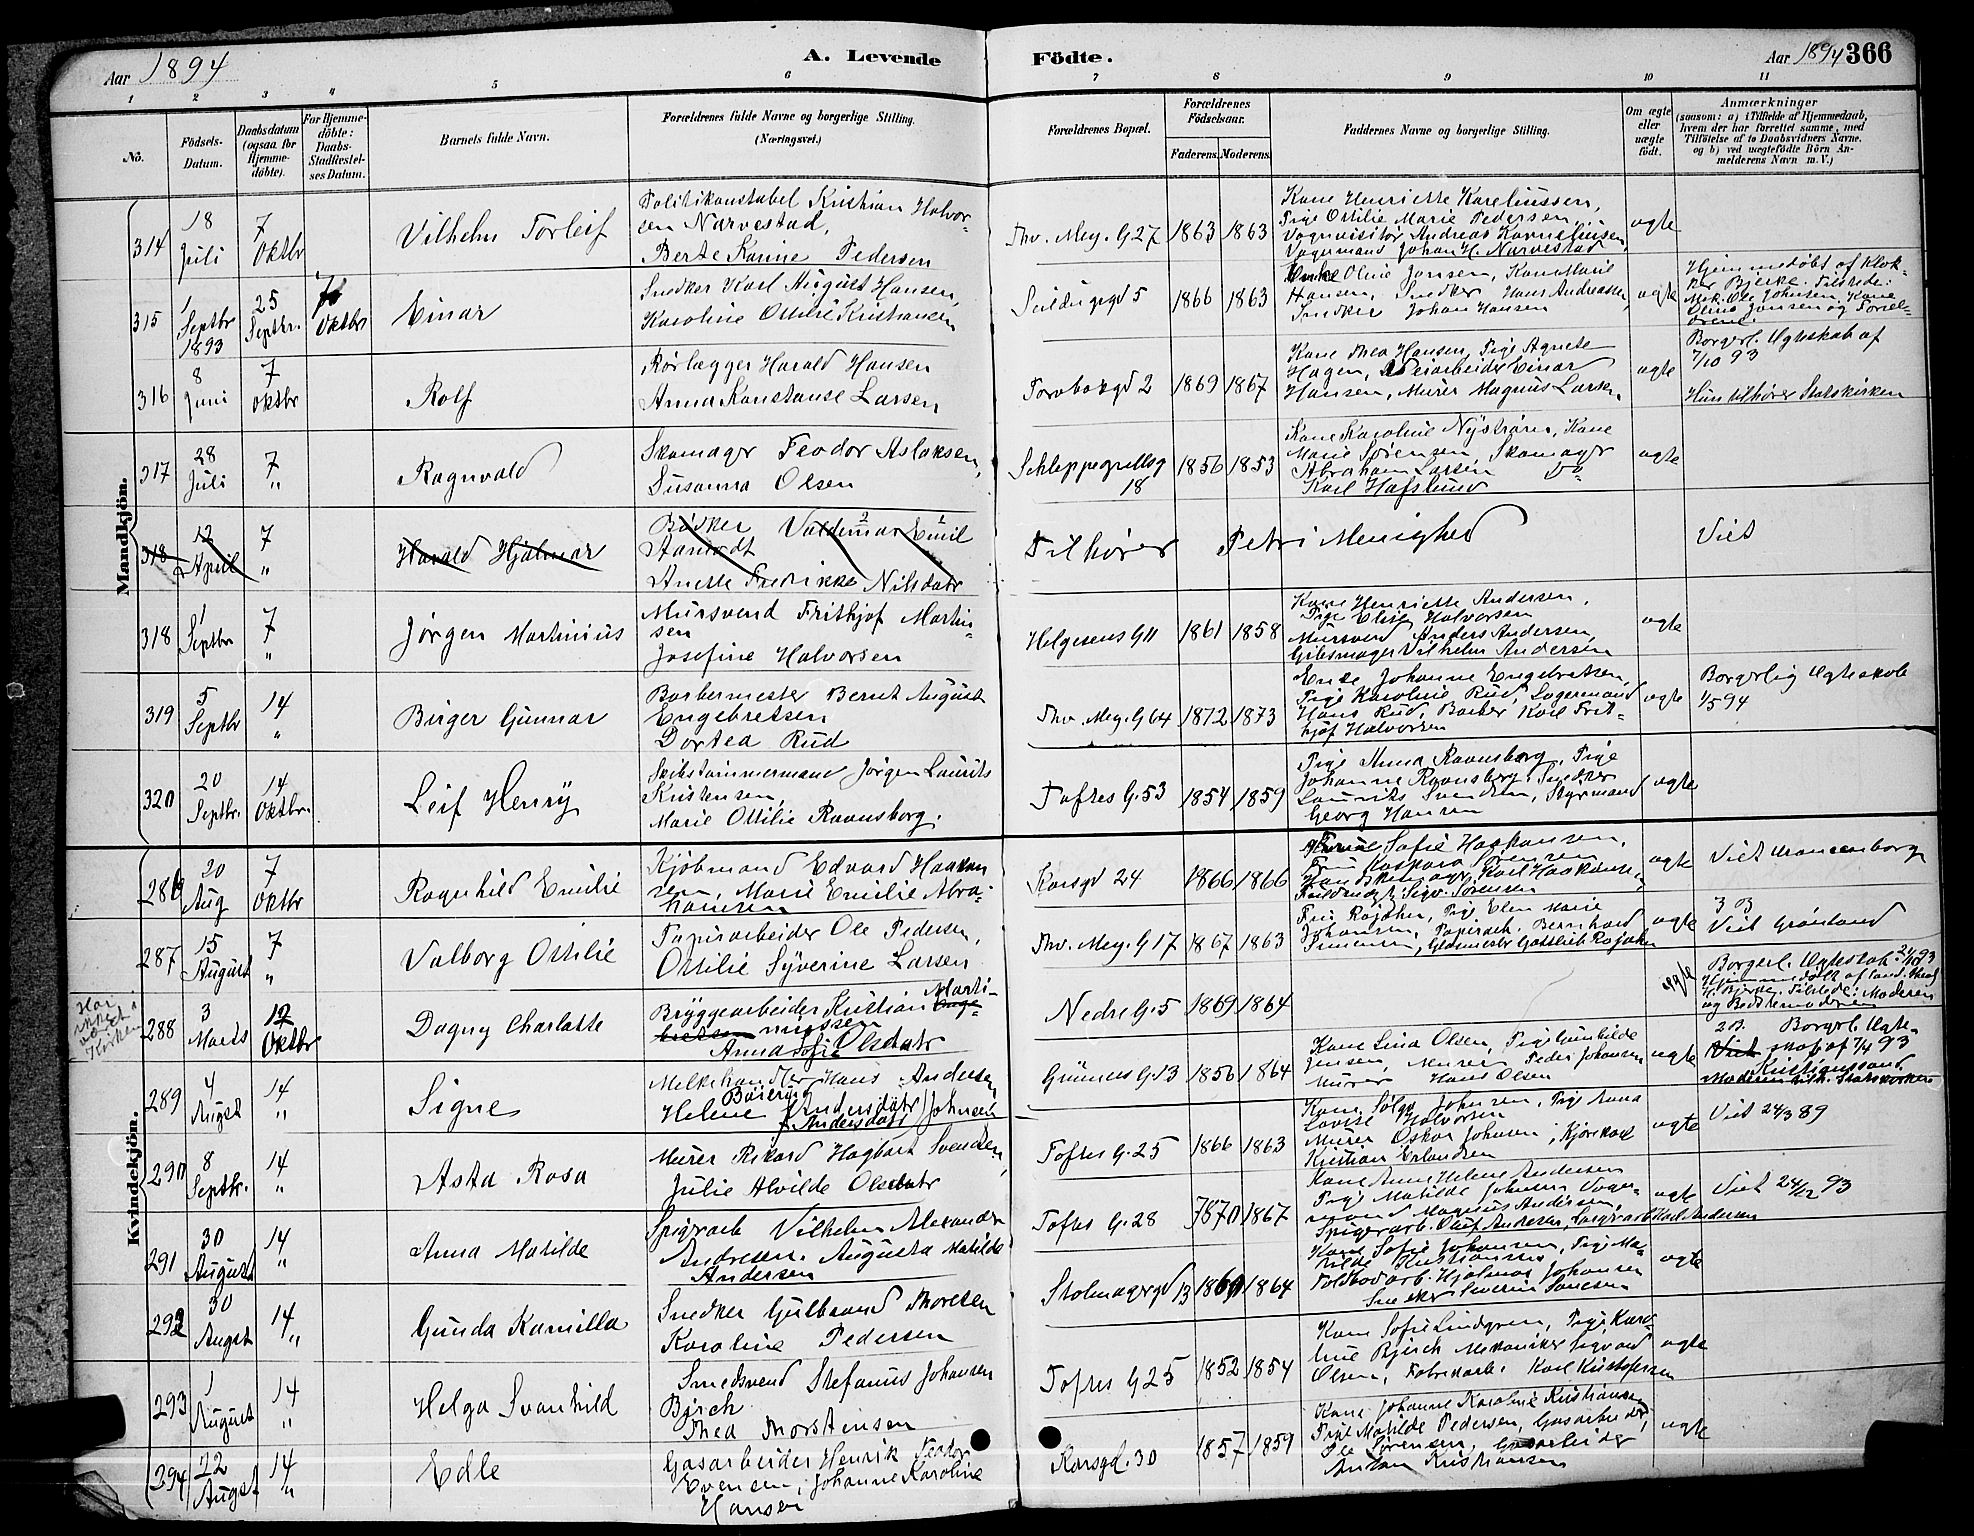 Aar 1894
A. Levende
Födte.
Aar 1894 366
1 2 3 4 5 6 7 8 9 10 11
No.
Födsels-Datum.
Daabsdatum (ogsaa for Hjemme-döbte).
For Hjemme-döbte: Daabs-Stadfæstel-ses Datum.
Barnets fulde Navn.
Forældrenes fulde Navne og borgerlige Stilling. (Næringsvei.)
Forældrenes Bopæl.
Forældrenes Födselsaar.
Faderens. Moderens.
Faddernes Navne og borgerlige Stilling.
Om ægte eller uægte födt.
Anmærkninger
(saasom: a) i Tilfælde af Hjemmedaab, hvem der har forrettet samme, med Tilföielse af to Daabsvidners Navne. og b) ved uægtefödte Börn An-melderens Navn m. V.)
Mandkjön.
314 18 Juli 7 Oktbr Vilhelm Torleif
Politikonstabel Kristian Halvor-
sen Narvestad,
Berte Karine Pedersen
Thv. Mey. G 27 1863 1863
Kone Henriette Korneliussen,
Pige Ottilie Marie Pedersen,
Vognvisitør Andreas Korneliussen,
Vognmand Johan H. Narvestad
ægte
315 1 Septbr 1893 25 Septbr. 7 Oktbr Einar
Snedker Karl August Hansen,
Karoline Ottilie Kristiansen
Seildugsgd 5 1866 1863
Enke Oline Jansen, Kone Marie
Hansen, Snedker Hans Andreassen,
Snedker Johan Hansen
ægte
Hjemmedøbt af Klok-
ker Bjerke. Tilstede:
Mek. Ole Johnsen, Kone
Oline Jansen og Foræl-
drene.
316 8 Juni 7 Oktbr Rolf
Rørlægger Harald Hansen
Anna Konstanse Larsen
Torvbakgd 2 1869 1867
Kone Thea Hansen, Pige Agnete
Hagen, Veiarbeider Einar
Hansen, Murer Magnus Larsen
ægte
Borgerl. Ægteskab af
7/10 93
Hun tilhører Statskirken
317 28 Juli 7 " Ragnvald
Skomager Feodor Aslaksen,
Susanna Olsen
Schleppegrellsg 18 1856 1853
Kone Karoline Nystrøm, Kone
Marie Sørensen, Skomager
Abraham Larsen Do
Karl Hafslund
ægte
318 12 April 7 " Harald Hjalmar
Bødker Valdemar Emil
Aamodt
Anette Fredrikke Nilsdatr
Tilhører Petri Menighed
Viet
318 1 Septbr 7 " Jørgen Martinius
Mursvend Frithjof Martin-
sen
Josefine Halvorsen
Helgesens G 11 1861 1858
Kone Henriette Andersen,
Pige Elise Halvorsen
Mursvend Anders Andersen,
Gibsmager Vilhelm Andersen
ægte
319 5 Septbr 14 " Birger Gunnar
Barbermester Bernt August
Engebretsen
Dortea Rud
Thv. Mey. G 64 1872 1873
Enke Johanne Engebretsen,
Pige Karoline Rud, Lagermand
Hans Rud, Barber Karl Frit-
hjof Halvorsen
ægte
Borgerlig Ægteskab
1/5 94
320 20 Septbr. 14 Oktbr. Leif Henry
Skibstømmermand Jørgen Laurits
Kristensen,
Marie Ottilie Ravnsborg.
Toftes G. 53 1854 1859
Pige Anna Ravnsborg, Pige
Johanne Ravnsborg, Snedker
Laurits Svendsen, Styrmand
Georg Hansen
ægte
Kvindekjön.
286 20 Aug 7 Oktbr Ragnhild Emilie
Kjøbmand Edvard Haakon
sen, Marie Emilie Abra-
hamsen
Korsgd 24 1866 1866
Sofie Haakonsen,
Sørensen
Handskemager Karl Haakonsen,
Sigv. Sørensen
ægte
Viet
287 15 August 7 " Valborg Ottilie
Papirarbeider Ole Pedersen,
Ottilie Syverine Larsen
Thv. Mey. G 17 1867 1863
Pige Elen Marie
Johansen, Papirarb. Bernhard
Simensen, Gottlieb
ægte
Viet Grønland
288 3 Marts 12 Oktbr Dagny Charlotte
Bryggearbeider Kristian Marti-
niussen
Anna Sofie Olsdatr
Nedre G. 5 1869 1864
ægte
Borgerl. Ægtesk.
og Bestemoderen
289 4 Augst 14 " Signe
Melkehandler Hans Andersen
Bøiering
Helene Andersdatr (Johnsen
Andersdatr
Grünners G 13 1856 1864
Kone Lina Olsen, Pige Gunhilde
Jensen, Murer Peder Johansen
Murer Hans Olsen
ægte
Borgerl. Ægte-
skab af 7/4 93
Kristianssand.
Moderen tilh. Statskirken
290 8 Septbr. 14 " Asta Rosa
Murer Rikard Hagbart Svendsen,
Julie Alvilde Olsdatr
Toftes G. 25 1866 1863
Kone Johnsen, Pige Anna
Lovise Halvorsen
Murer Oskar Johnsen, Kjørekarl
Kristian Erlandsen
ægte
Viet 24/3 89
291 30 August 14 " Anna Matilde
Spigerarb Vilhelm Alexander
Andresen. Augusta Matilde
Andersen
Toftes G. 28 1870 1867
Kone Anne Helene Andersen
Pige Matilde Johnsen Vogn-
mand Magnus Andersen
Spigerarb. Oluf Andersen, Spigerarb Karl Andersen
ægte
Viet 24/12 93
292 30 Augst 14 " Gunda Kamilla
Snedker Gulbrand Thoresen
Karoline Pedersen
Stolmagergd 13 1860 1864
Kone Sofie Johansen, Pige Ma-
tilde Kristiansen
Toldbodarb. Hjalmar Johansen
Snedker Severin
ægte
293 1 August 14 " Helga Svanhild
Smedsvend Stefanus Johansen
Bjrch
Thea Thorstensen
Toftes G 25 1852 1854
Kone Sofie Lindgren, Pige Karo-
line Bjrch Mekaniker Sigvard
Olsen, Fabrikarb. Karl Kristofersen
ægte
294 22 Augst 14 " Edle
Gasarbeider Henrik Feodor
Evensen, Johanne Karoline
Hansen
Korsgd. 30 1857 1859
Kone Johanne Karoline Kristiansen
Pige Matilde Pedersen, Gasarbeider
Ole Sørensen, Gasarbeider
Anton Kristiansen
ægte